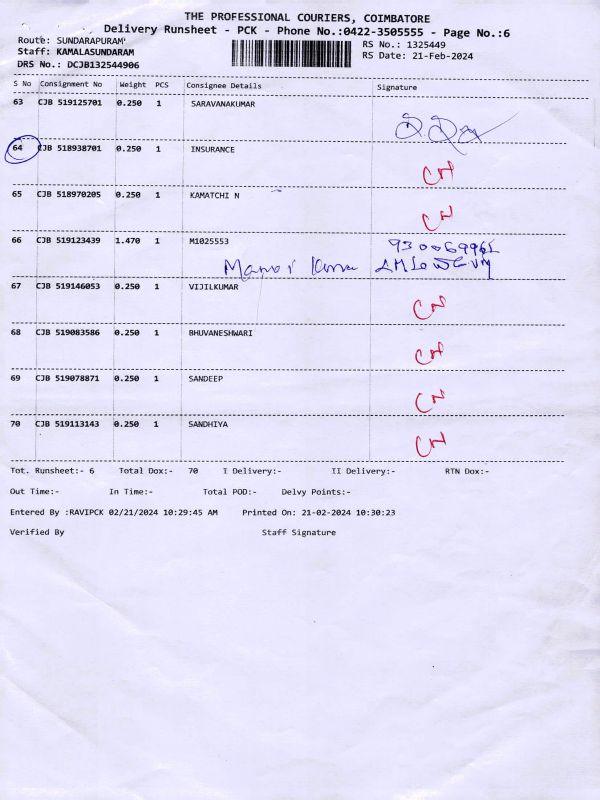 THE PROFESSIONAL COURIERS, COIMBATORE
Delivery Runsheet - PCK - Phone No.:0422-3505555 - Page No.:6
Route: SUNDARAPURAM
RS No.: 1325449
Staff: KAMALASUNDARAM
RS Date: 21-Feb-2024
DRS No.: DCJB132544906
S No Consignment No Weight PCS Consignee Details Signature
63 CJB 519125701 0.250 1 SARAVANAKUMAR
64 CJB 518938701 0.250 1 INSURANCE
CN
65 CJB 518970205 0.250 1 KAMATCHI N
CN
66 CJB 519123439 1.470 1 M1025553
67 CJB 519146053 0.250 1 VIJILKUMAR
CN
68 CJB 519083586 0.250 1 BHUVANESHWARI
CN
69 CJB 519078871 0.250 1 SANDEEP
CN
70 CJB 519113143 0.250 1 SANDHIYA
CN
Tot. Runsheet:- 6 Total Dox:- 70 I Delivery:- II Delivery:- RTN Dox:-
Out Time:- In Time:- Total POD:- Delvy Points:-
Entered By :RAVIPCK 02/21/2024 10:29:45 AM Printed On: 21-02-2024 10:30:23
Verified By Staff Signature